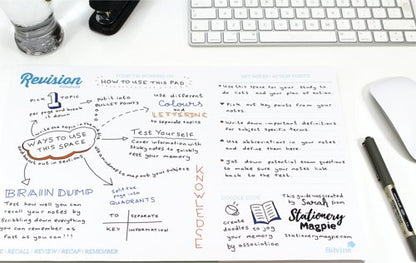 Revision
HOW TO USE THIS PAD
KEY NOTES / ACTION POINTS
PICK 1 TOPIC
per page and break
it down
put it into
BULLET POINTS
use different
Colours
and
LETTERING
to separate topics
Write the topic in the
WAYS TO USE
THIS SPACE
Test Yourself
Cover information with
Ruby notes to quickly
test your memory
map out your subject
out in sections
BRAIN DUMP
Test how well you can
recall your notes by
scribbling down everything
you can remember as
fast as you can!!!
Split the
page into
QUADRANTS
TO SEPARATE
KEY INFORMATION
KNOWLEDGE
Use this space for your study to
do lists and your plan of action.
Pick out key points from your
notes.
Write down important definitions
for subject specific terms.
Use abbreviations in your notes
and define them here.
Jot down potential exam questions
to make sure your notes link
back to the test.
create
doodles to jog
your memory
by association
This guide was created
by Sarah from
Stationery
Magpie
stationerymagpie.com
/ RECALL / REVIEW / RECAP / REMEMBER
Silvine